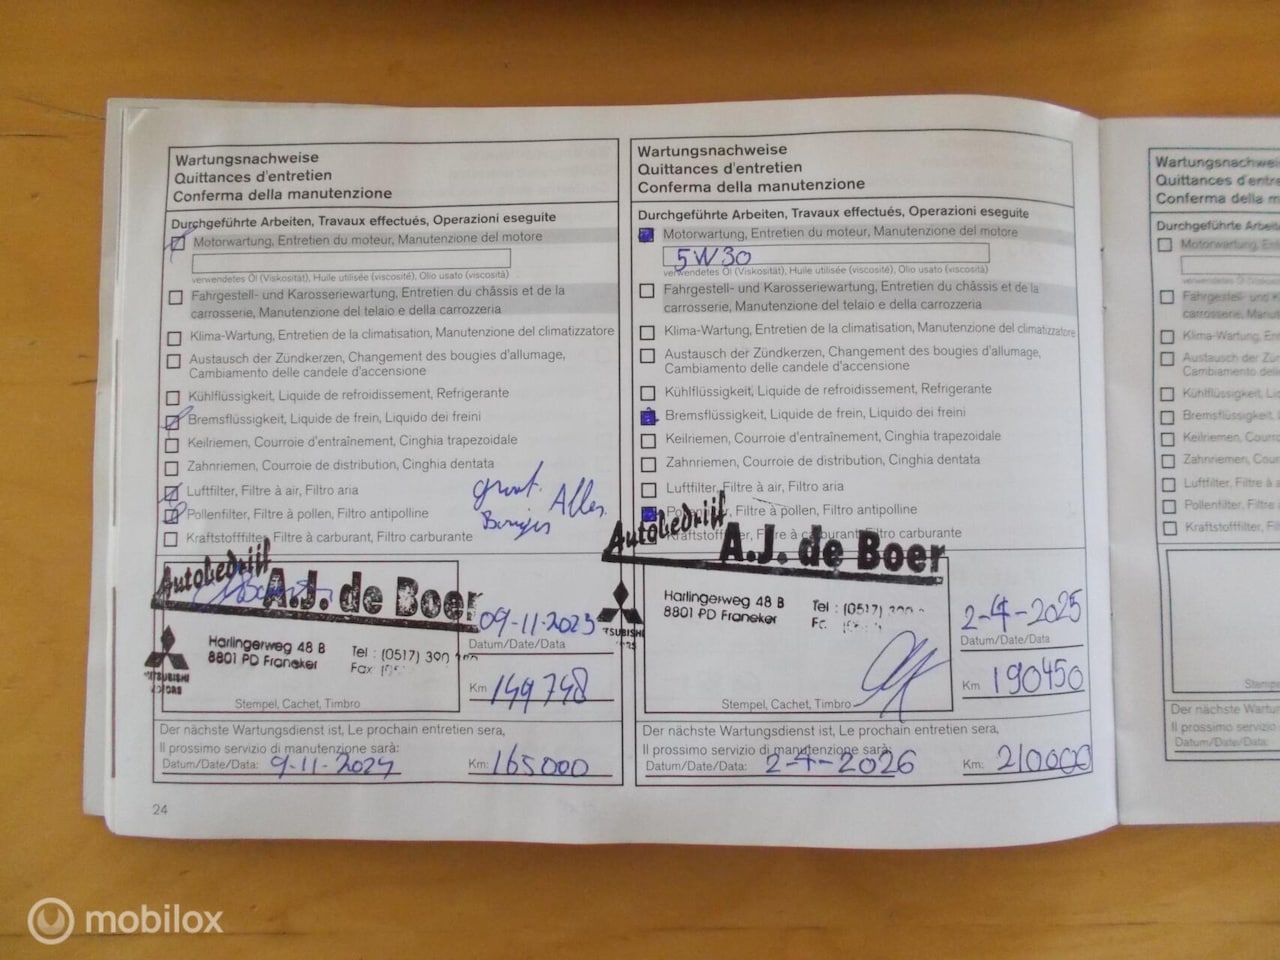 Wartungsnachweise
Quittances d'entretien
Conferma della manutenzione
Durchgeführte Arbeiten, Travaux effectués, Operazioni eseguite
Motorwartung, Entretien du moteur, Manutenzione del motore
verwendetes Öl (Viskosität), Huile utilisée (viscosité), Olio usato (viscosità)
Fahrgestell- und Karosseriewartung, Entretien du châssis et de la
carrosserie, Manutenzione del telaio e della carrozzeria
Klima-Wartung, Entretien de la climatisation, Manutenzione del climatizzatore
Austausch der Zündkerzen, Changement des bougies d'allumage,
Cambiamento delle candele d'accensione
Kühlflüssigkeit, Liquide de refroidissement, Refrigerante
Bremsflüssigkeit, Liquide de frein, Liquido dei freini
Keilriemen, Courroie d'entraînement, Cinghia trapezoidale
Zahnriemen, Courroie de distribution, Cinghia dentata
Luftfilter, Filtre à air, Filtro aria
Pollenfilter, Filtre à pollen, Filtro antipolline
Kraftstofffilter, Filtre à carburant, Filtro carburante
Autobedrijf A.J. de Boer
Harlingerweg 48 B
8801 PD Franeker
Tel : (0517) 390
Fax
MITSUBISHI
MOTORS
09-11-2023
Datum/Date/Data
Km 149748
Stempel, Cachet, Timbro
Der nächste Wartungsdienst ist, Le prochain entretien sera,
Il prossimo servizio di manutenzione sarà:
Datum/Date/Data: 9-11-2024 Km: 165000
24
Wartungsnachweise
Quittances d'entretien
Conferma della manutenzione
Durchgeführte Arbeiten, Travaux effectués, Operazioni eseguite
Motorwartung, Entretien du moteur, Manutenzione del motore
5W30
verwendetes Öl (Viskosität), Huile utilisée (viscosité), Olio usato (viscosità)
Fahrgestell- und Karosseriewartung, Entretien du châssis et de la
carrosserie, Manutenzione del telaio e della carrozzeria
Klima-Wartung, Entretien de la climatisation, Manutenzione del climatizzatore
Austausch der Zündkerzen, Changement des bougies d'allumage,
Cambiamento delle candele d'accensione
Kühlflüssigkeit, Liquide de refroidissement, Refrigerante
Bremsflüssigkeit, Liquide de frein, Liquido dei freini
Keilriemen, Courroie d'entraînement, Cinghia trapezoidale
Zahnriemen, Courroie de distribution, Cinghia dentata
Luftfilter, Filtre à air, Filtro aria
Pollenfilter, Filtre à pollen, Filtro antipolline
Kraftstofffilter, Filtre à carburant, Filtro carburante
Autobedrijf A.J. de Boer
Harlingerweg 48 B
8801 PD Franeker
Tel : (0517)
2-4-2025
Datum/Date/Data
Km 190450
Stempel, Cachet, Timbro
Der nächste Wartungsdienst ist, Le prochain entretien sera,
Il prossimo servizio di manutenzione sarà:
Datum/Date/Data: 2-4-2026 Km: 210000
Quittances d'entre
Conferma della m
Durchgeführte Arbeit
Motorwartung, En
Klima-Wartung, En
Austausch der Zün
Kühlflüssigkeit, Li
Bremsflüssigkeit, L
Keilriemen, Courro
Zahnriemen, Courr
Luftfilter, Filtre à a
Pollenfilter, Filtre
Kraftstofffilter, Filt
Der nächste Wartu
Il prossimo servizio
Datum/Date/Data:
mobilox